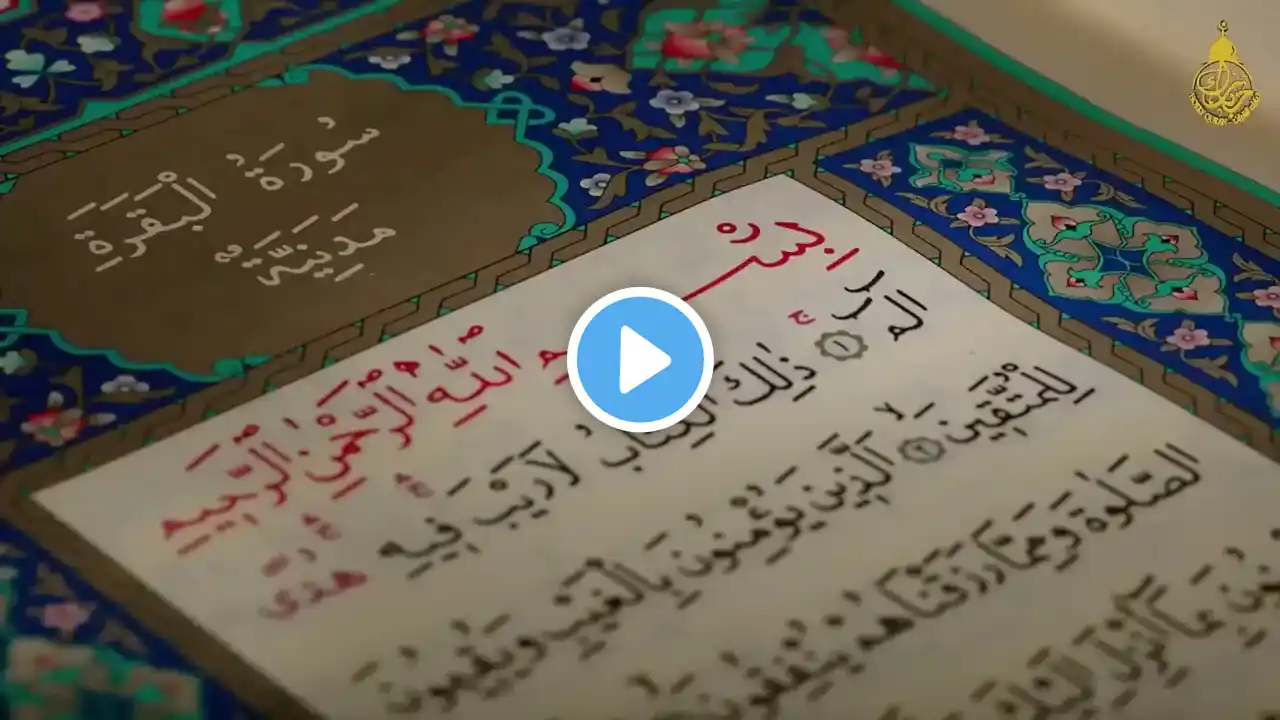 سُورَةُ الْبَقَرَةِ
مَدَنِيَّةٌ
بِسْمِ اللّٰهِ الرَّحْمٰنِ الرَّحِيمِ
الم ١ ذٰلِكَ الْكِتَابُ لَا رَيْبَ فِيهِ هُدًى
لِلْمُتَّقِينَ ٢ الَّذِينَ يُؤْمِنُونَ بِالْغَيْبِ وَيُقِيمُونَ
الصَّلٰوةَ وَمِمَّا رَزَقْنَاهُمْ يُنْفِقُونَ
بِمَا أُنْزِلَ إِلَيْكَ